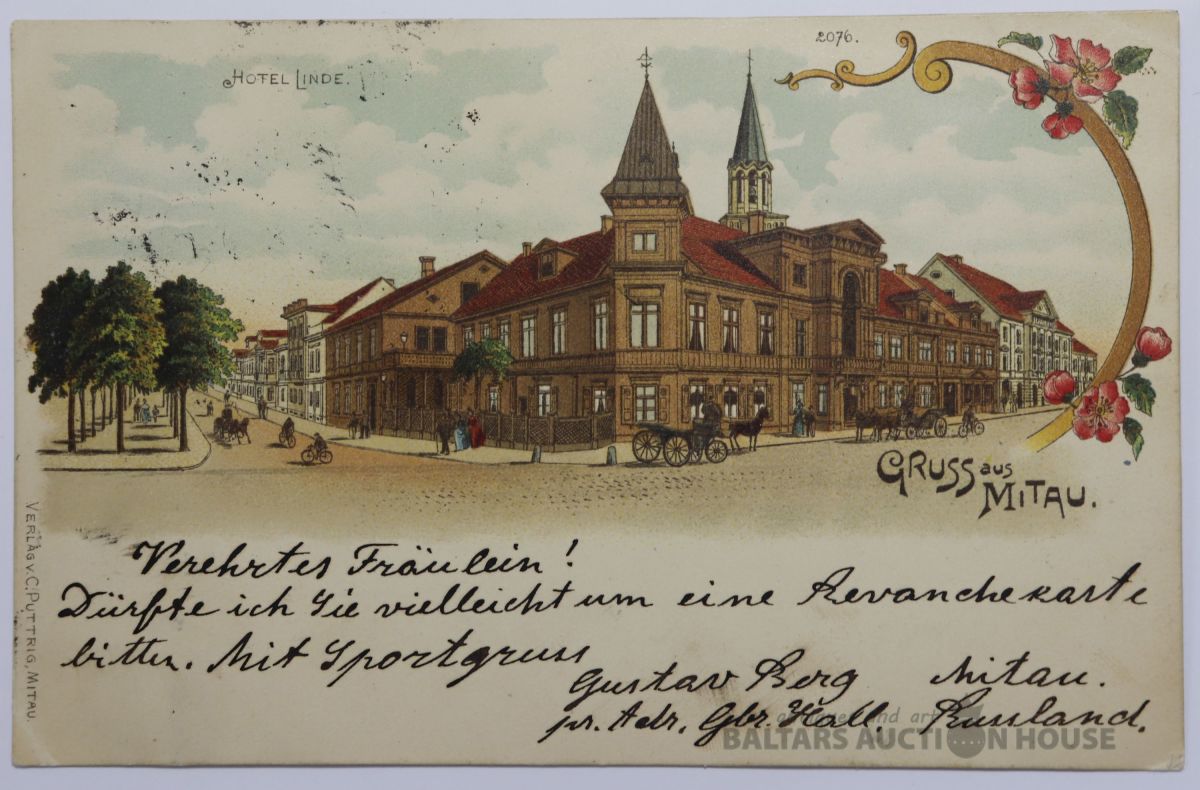 HOTEL LINDE.
2076.
GRUSS aus
MITAU.
VERLAG V. C. PUTTRIG, MITAU.
Verehrtes Fräulein!
Dürfte ich Sie vielleicht um eine Revanchekarte
bitten. Mit Sportgruss
Gustav Berg Mitau.
pr. Adr. Gbr. Hall. Russland.
and art
BALTARS AUCTION HOUSE